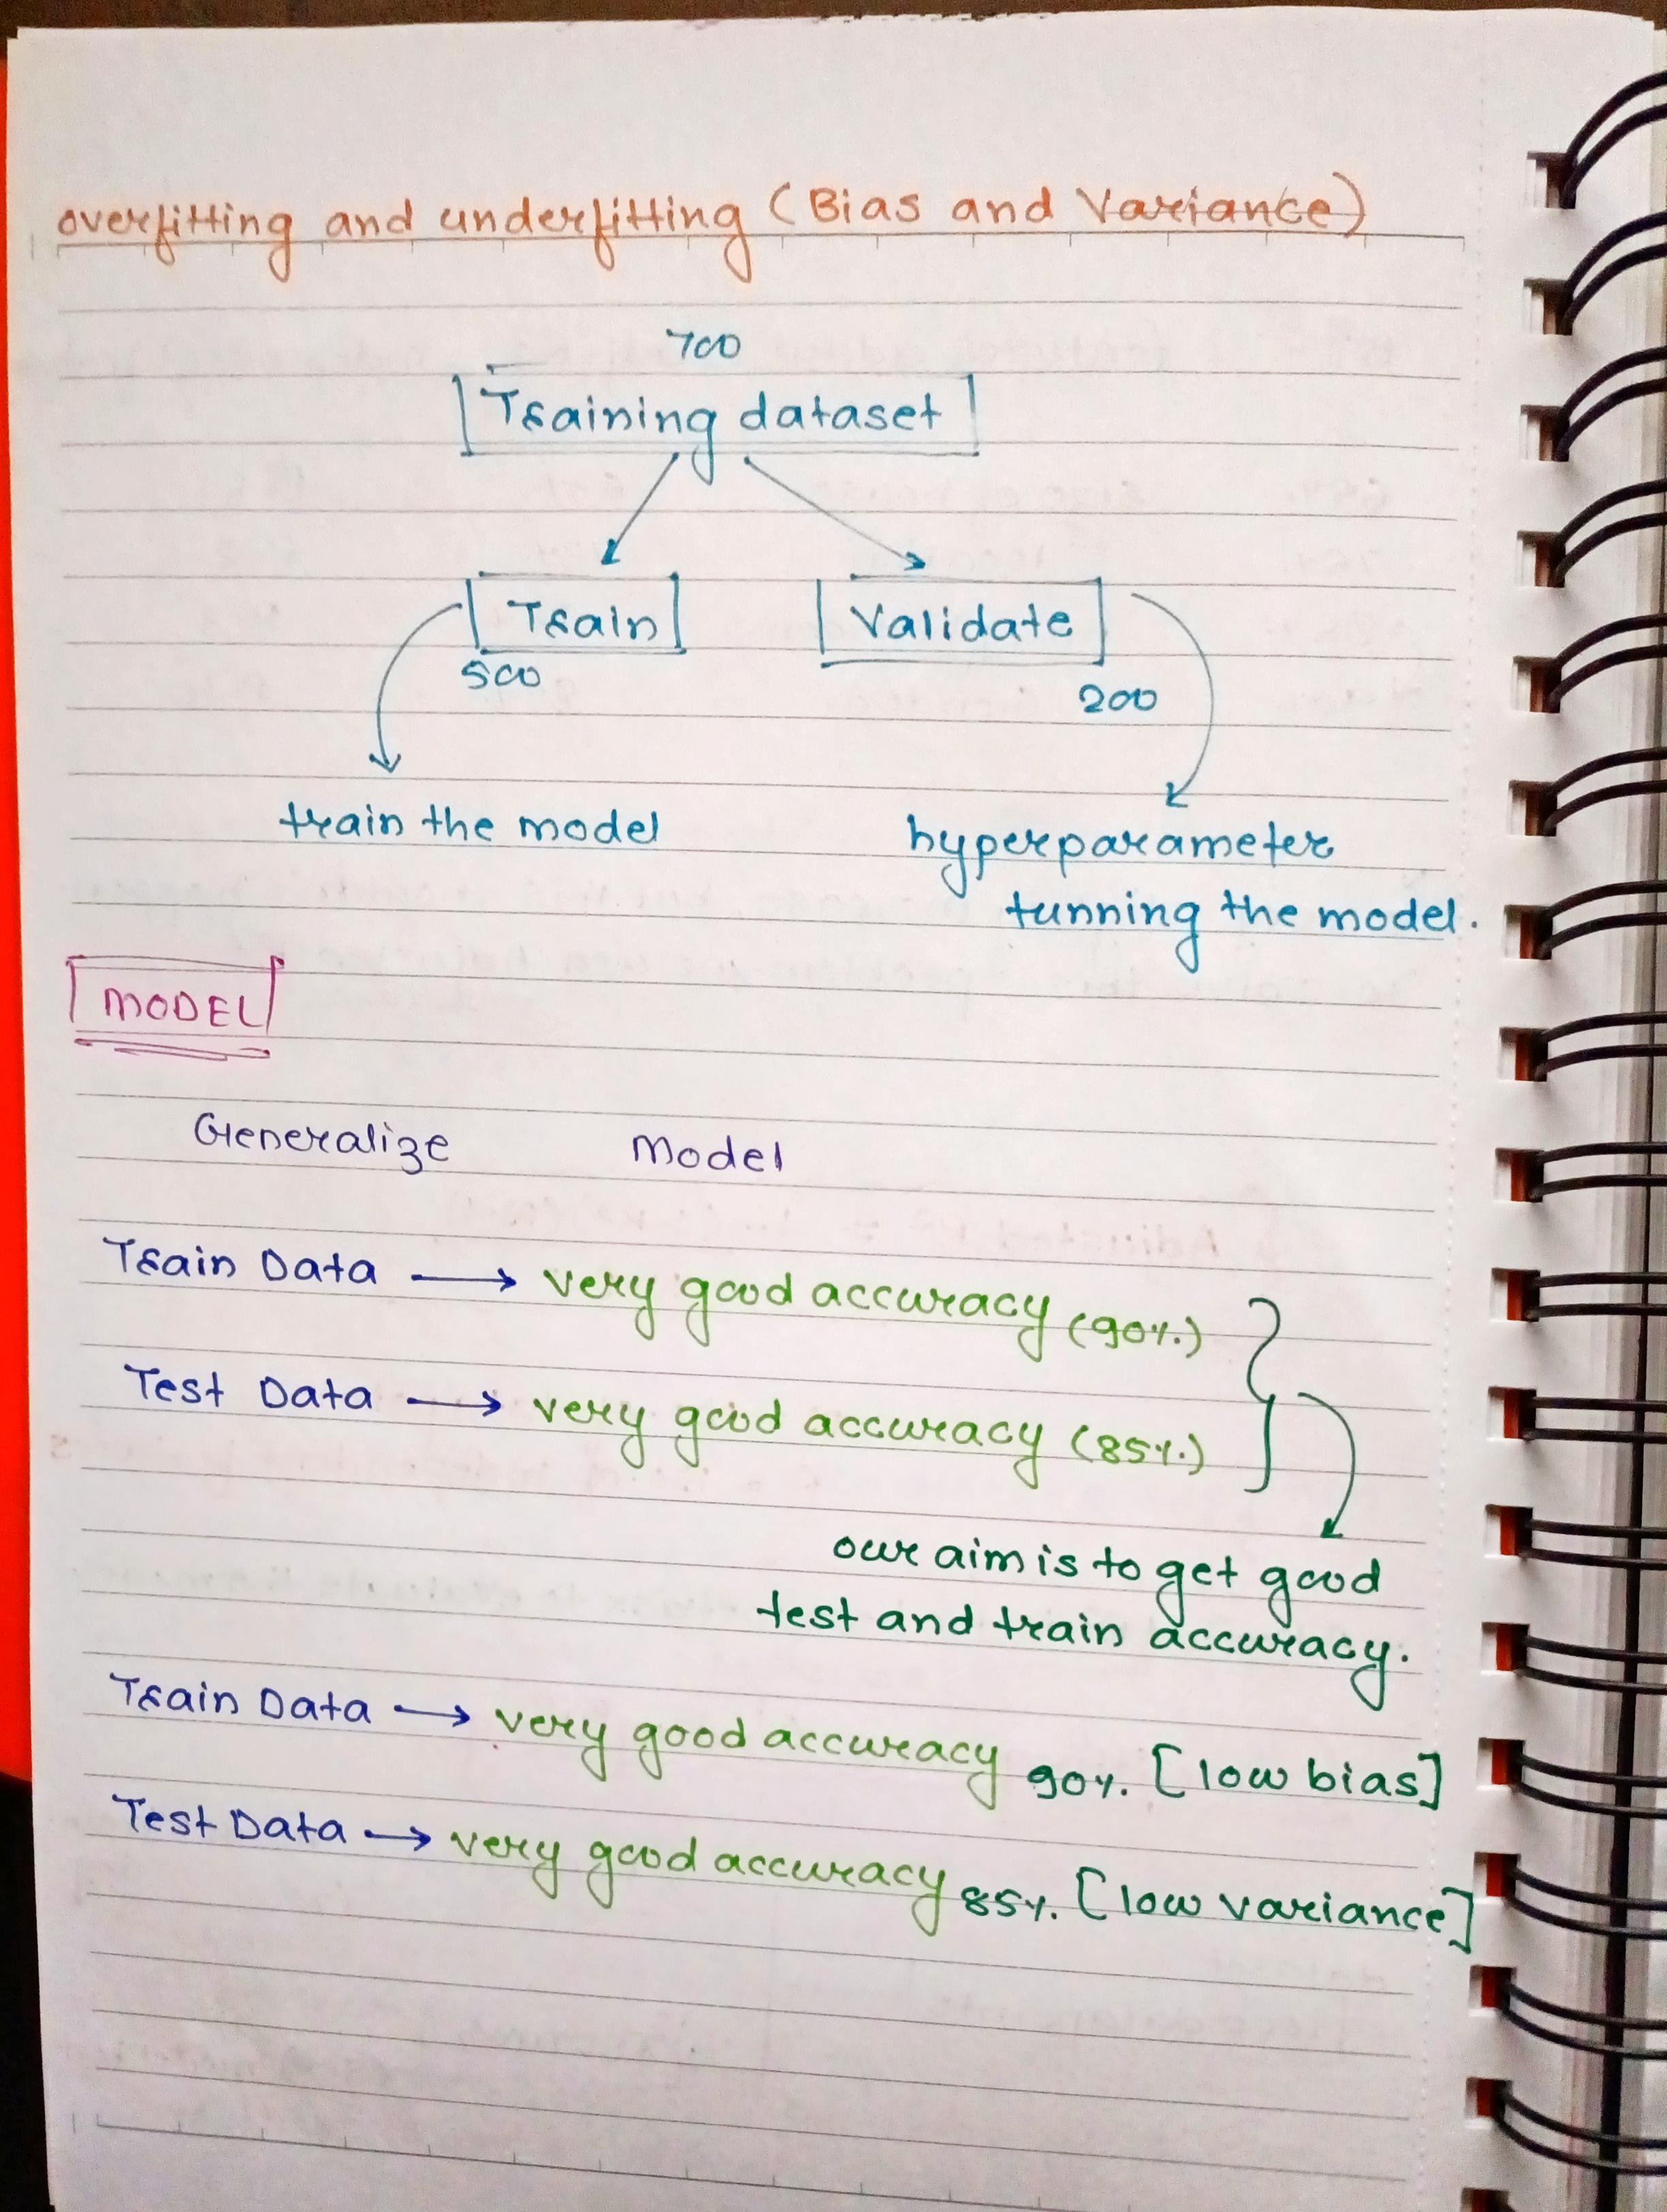 overfitting and underfitting (Bias and Variance)
700
Training dataset
Train
Validate
500
200
train the model
hyperparameter
tunning the model.
MODEL
Generalize Model
Train Data → very good accuracy (90%)
Test Data → very good accuracy (85%)
our aim is to get good
test and train accuracy.
Train Data → very good accuracy 90% [low bias]
Test Data → very good accuracy 85% [low variance]